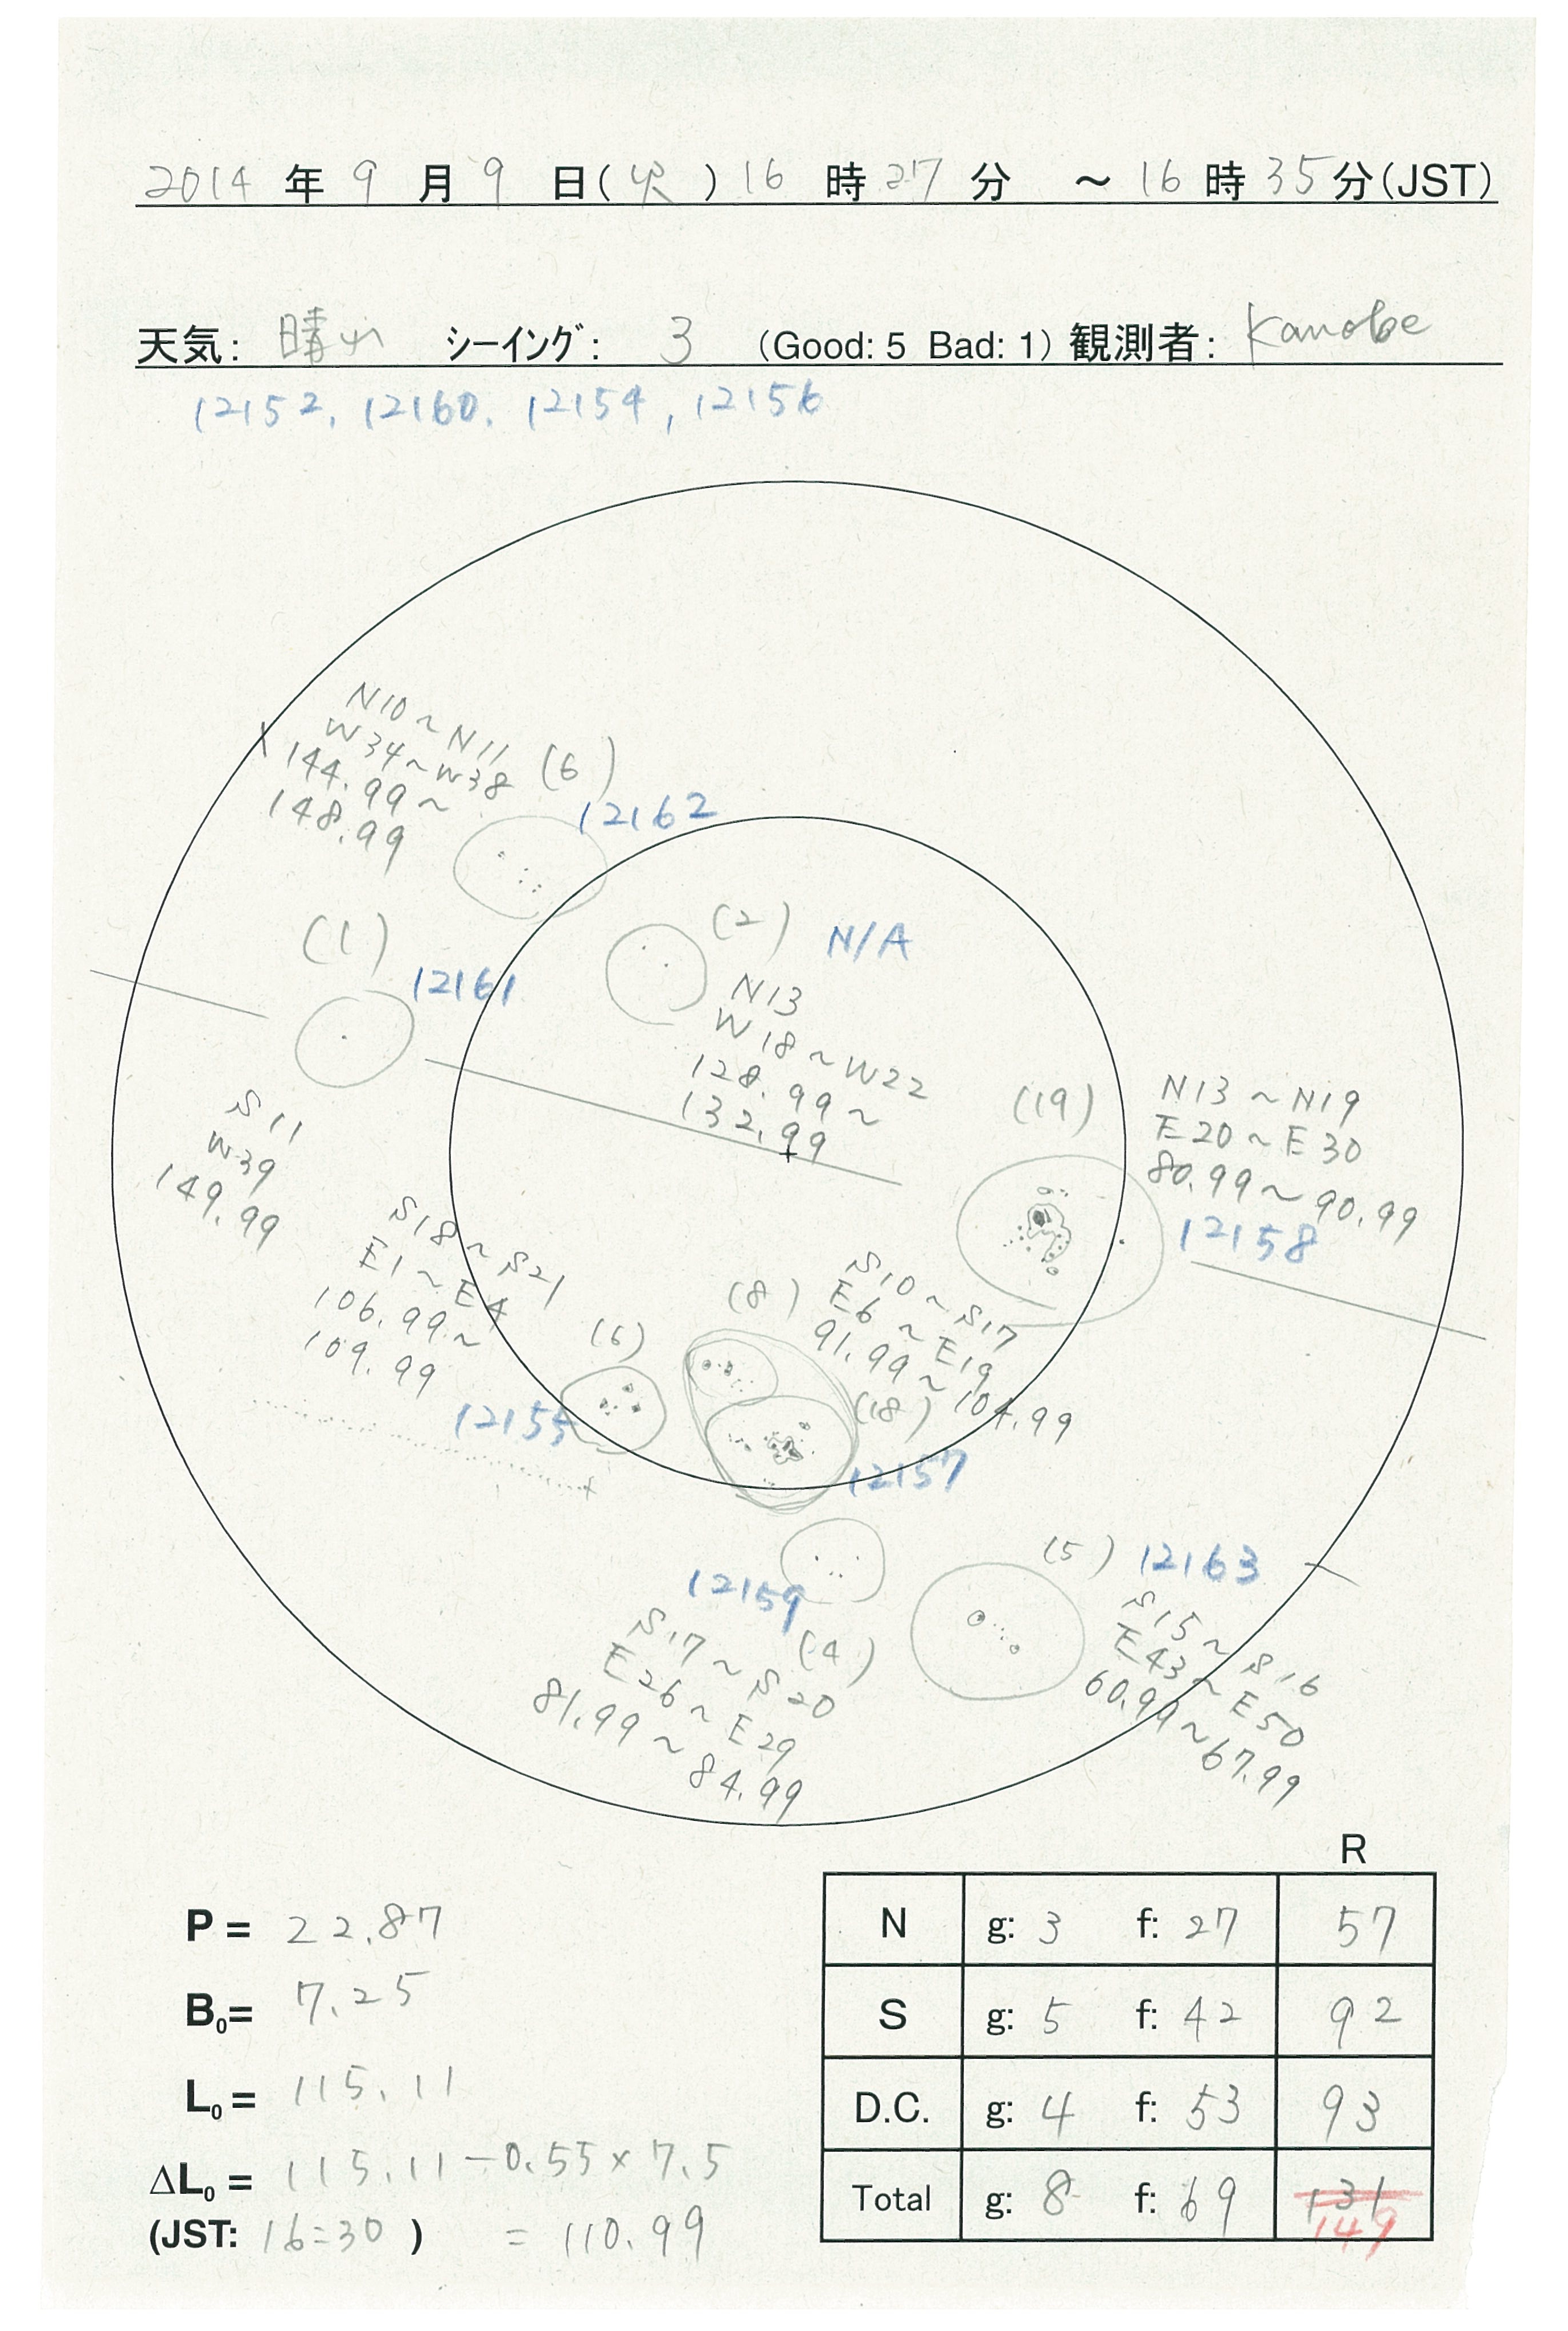 2014 年 9 月 9 日(火) 16 時 27 分 ～ 16 時 35 分(JST)
天気: 晴れ シーイング: 3 (Good: 5 Bad: 1) 観測者: Kanobe
12152, 12160, 12154, 12156
N10～N11
W34～W38
144.99～
148.99
(6)
12162
(1)
12161
(2) N/A
N13
W18～W22
128.99～
132.99
S11
W39
149.99
(19)
N13～N19
E20～E30
80.99～90.99
12158
S18～S21
E1～E4
106.99～
109.99
(6)
12155
(8)
S10～S17
E6～E19
91.99～
104.99
(18)
12157
12159
(4)
S17～S20
E26～E29
81.99～
84.99
(5) 12163
S15～S16
E43～E50
60.99～67.99
R
N g: 3 f: 27 57
S g: 5 f: 42 92
D.C. g: 4 f: 53 93
Total g: 8 f: 69 131
149
P = 22.87
B0= 7.25
L0= 115.11
ΔL0= 115.11-0.55×7.5
(JST: 16:30) = 110.99